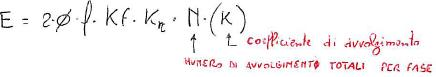 E = 2·φ·f·Kf·Kη·N·(K)
coefficiente di avvolgimento
NUMERO DI AVVOLGIMENTO TOTALI PER FASE